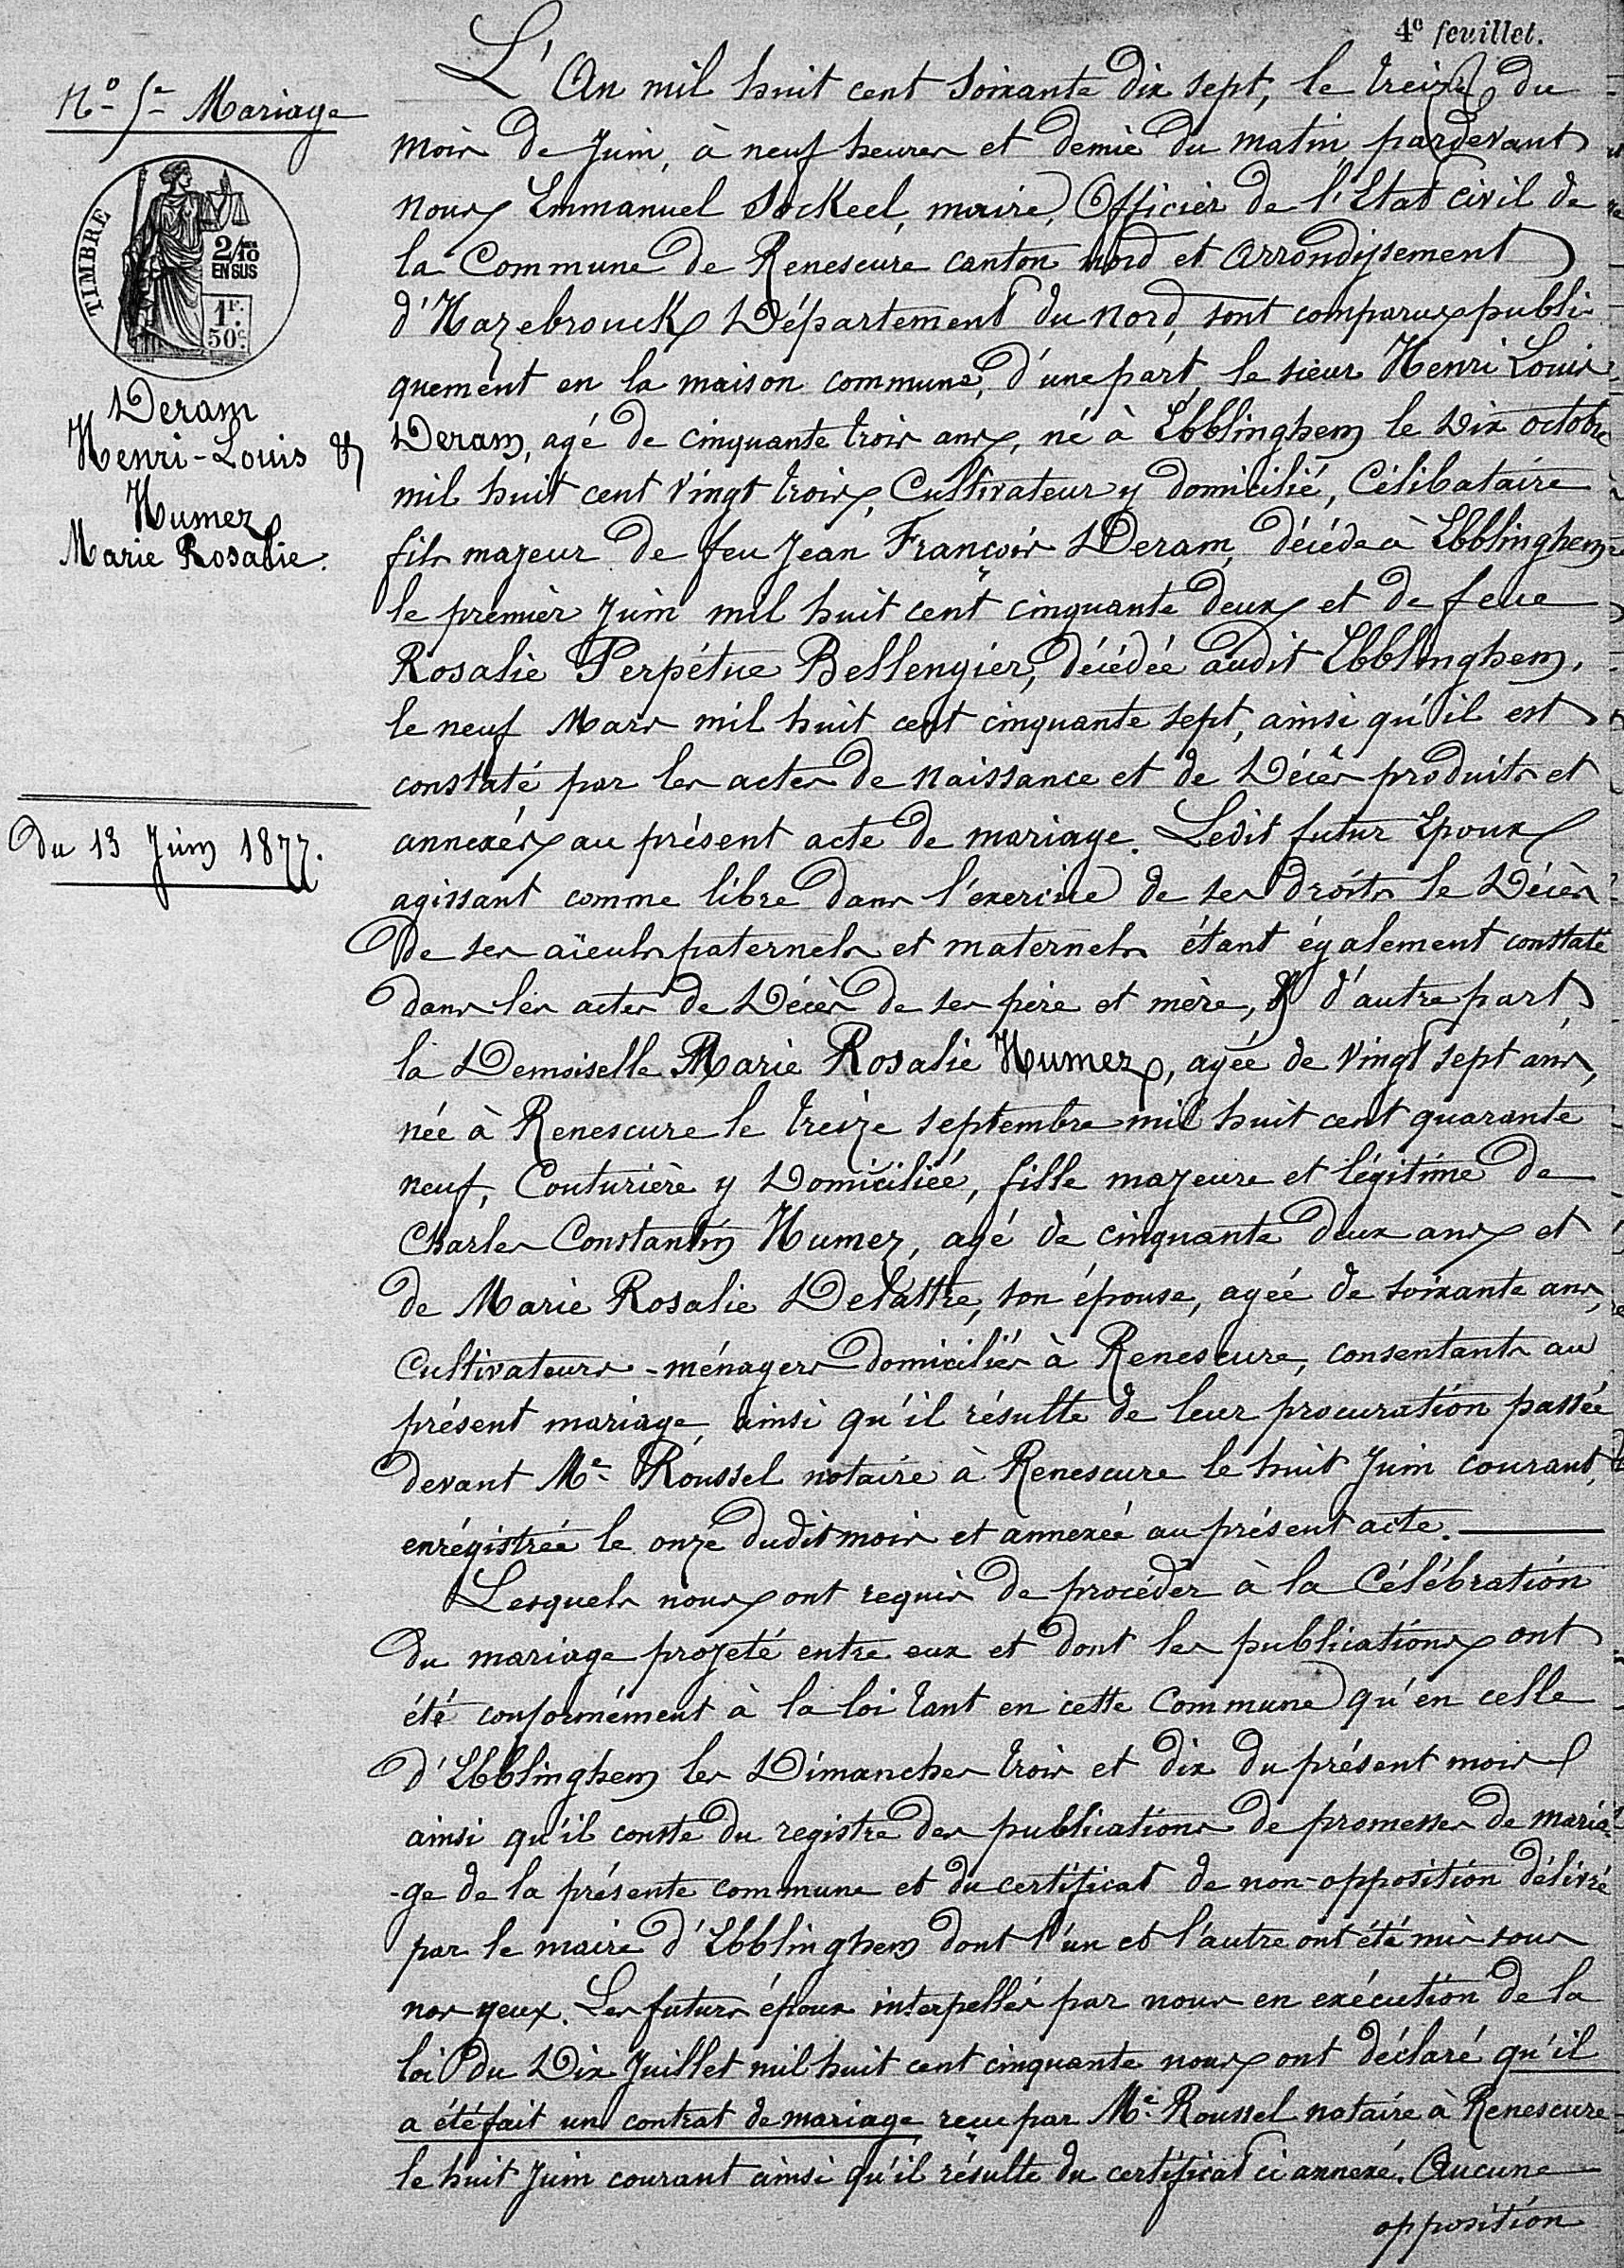 4e feuillet.
No 5e Mariage
TIMBRE
2/10
EN SUS
1F.
50c.
Deram
Henri-Louis &
Humez
Marie Rosalie.
Du 13 Juin 1877.
L'An mil huit cent soixante dix sept, le treize du
mois de Juin, à neuf heures et demie du matin, pardevant
nous Emmanuel Sockeel, maire, Officier de l'Etat civil de
la Commune de Renescure canton nord et arrondissement
d'Hazebrouck Département du Nord, sont comparus publi-
quement en la maison commune, d'une part, le sieur Henri Louis
Deram, agé de cinquante trois ans, né à Ebblinghem le Dix octobre
mil huit cent vingt trois, Cultivateur y domicilié, Célibataire
fils majeur de feu Jean François Deram, décédé à Ebblinghem
le premier Juin mil huit cent cinquante deux et de feue
Rosalie Perpétue Bellengier, décédée audit Ebblinghem,
le neuf Mars mil huit cent cinquante sept, ainsi qu'il est
constaté par les actes de naissance et de Décès produits et
annexés au présent acte de mariage. Ledit futur Epoux
agissant comme libre dans l'exercice de ses droits le Décès
de ses aïeuls paternels et maternels étant également constaté
dans les actes de Décès de ses père et mère, & d'autre part,
la Demoiselle Marie Rosalie Humez, agée de vingt sept ans,
née à Renescure le treize septembre mil huit cent quarante
neuf, Couturière y Domiciliée, fille majeure et légitime de
Charles Constantin Humez, agé de cinquante deux ans et
de Marie Rosalie Delattre, son épouse, agée de soixante ans,
Cultivateurs-ménagers domiciliés à Renescure, consentants au
présent mariage, ainsi qu'il résulte de leur procuration passée
devant Me Roussel notaire à Renescure le huit Juin courant,
enrégistrée le onze dudit mois et annexée au présent acte.
Lesquels nous ont requis de procéder à la Célébration
du mariage projeté entre eux et dont les publications ont
été conformément à la loi tant en cette Commune qu'en celle
d'Ebblinghem les Dimanches trois et dix du présent mois
ainsi qu'il conste du registre des publications de promesses de maria-
-ge de la présente commune et du certificat de non-opposition délivré
par le maire d'Ebblinghem dont l'un et l'autre ont été mis sous
nos yeux. Les futurs époux interpellés par nous en exécution de la
loi du Dix Juillet mil huit cent cinquante nous ont déclaré qu'il
a été fait un contrat de mariage reçu par Me Roussel notaire à Renescure
le huit Juin courant ainsi qu'il résulte du certificat ci annexé. Aucune
opposition